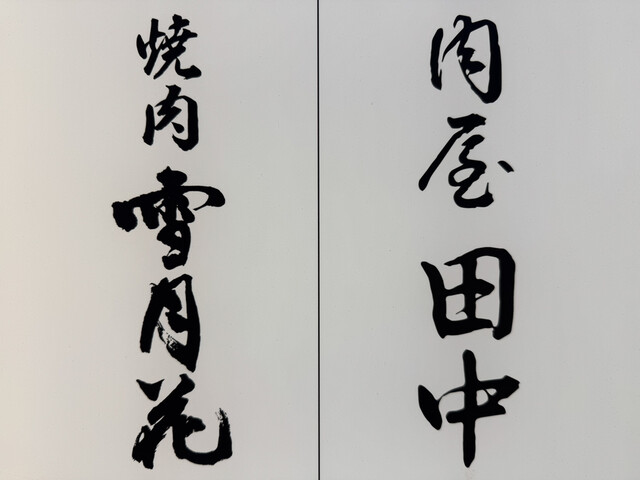 肉屋 田中
焼肉 雪月花